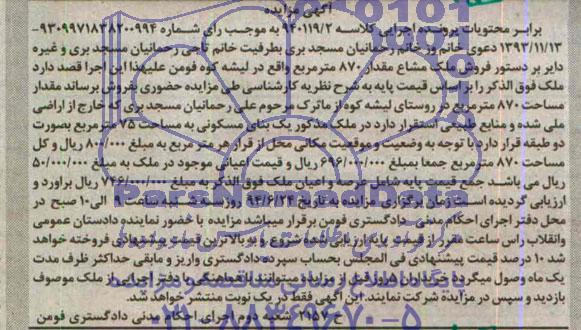 آگهی مزایده
برابر محتویات پرونده اجرایی کلاسه ۹۴۰۱۱۹/۲ به موجب رأی شماره ۹۳۰۹۹۷۱۸۳۸۲۰۰۹۹۴-
۱۳۹۳/۱۱/۱۳ دعوی خانم ورخانم رحمانیان مسجد بری بطرفیت خانم تاجی رحمانیان مسجد بری و غیره
دایر بر دستور فروش ملک مشاع مقدار ۸۷۰ مترمربع واقع در لیشه کوه فومن علیهذا این اجرا قصد دارد
ملک فوق الذکر را بر اساس قیمت پایه به شرح نظریه کارشناسی طی مزایده حضوری بفروش برساند مقدار
مساحت ۸۷۰ مترمربع در روستای لیشه کوه از ماترک مرحوم علی رحمانیان مسجد بری که خارج از اراضی
ملی شده و منابع طبیعی استقرار دارد در ملک مذکور یک بنای مسکونی به مساحت ۷۵ مترمربع بصورت
دو طبقه قرار دارد با توجه به وضعیت و موقعیت مکانی محل از قرار هر متر مربع به مبلغ ۸۰۰/۰۰۰ ریال و کل
مساحت ۸۷۰ مترمربع جمعا بمبلغ ۶۹۶/۰۰۰/۰۰۰ ریال و قیمت اعیانی موجود در ملک به مبلغ ۵۰/۰۰۰/۰۰۰
ریال می باشد جمع قیمت پایه شامل عرصه و اعیان ملک فوق الذکر به مبلغ ۷۴۶/۰۰۰/۰۰۰ ریال براورد و
ارزیابی گردیده است زمان برگزاری مزایده به تاریخ ۹۴/۶/۲۴ روز سه شنبه ساعت ۹ الی ۱۰ صبح در
محل دفتر اجرای احکام مدنی دادگستری فومن برقرار میباشد مزایده با حضور نماینده دادستان عمومی
وانقلاب راس ساعت مقرر از قیمت پایه ارزیابی شده شروع و به بالاترین قیمت پیشنهادی فروخته خواهد
شد ۱۰ درصد قیمت پیشنهادی فی المجلس بحساب سپرده دادگستری واریز و مابقی حداکثر ظرف مدت
یک ماه وصول میگردد خریداران ۵ روز قبل از مزایده میتوانند با هماهنگی با دفتر اجرایی از ملک موصوف
بازدید و سپس در مزایده شرکت نمایند. این آگهی فقط در یک نوبت منتشر خواهد شد.
ح ۲۱۵۷ شعبه دوم اجرای احکام مدنی دادگستری فومن
۰۲۱-۸۸۳۴۹۶۷۰-۵